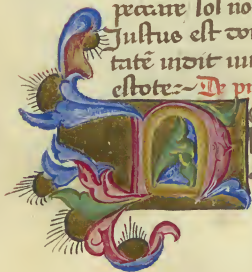 peccare sol no
Justus est don
tatē uidit uu
estote:~ De pr